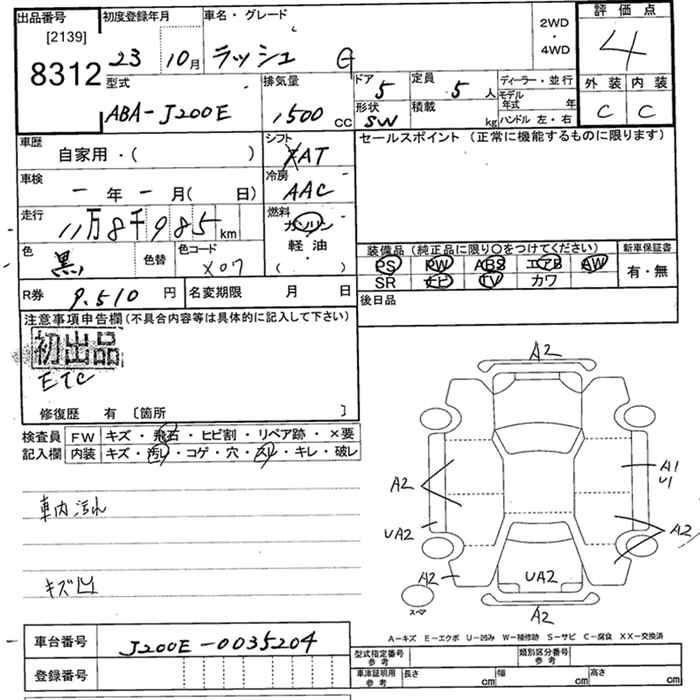 出品番号 初度登録年月 車名・グレード 2WD・4WD 評価点
[2139]
8312 23 10月 ラッシュ G 4
型式 排気量 ドア 定員 ディーラー・並行 外装 内装
ABA-J200E 1500 CC 5 5人 モデル年式 年 C C
形状 積載 kg ハンドル 左・右
SW
車歴 シフト セールスポイント(正常に機能するものに限ります)
自家用・( ) AT
車検 冷房
ー年ー月( 日) AAC
走行 燃料
11万8千985km ガソリン
軽油
・
( )
色 色替 色コード
黒 X07
装備品(純正品に限り○をつけてください) 新車保証書
PS PW ABS エアB AW 有・無
SR ナビ TV カワ
R券 9,510円 名変期限 月 日 後日品
注意事項申告欄(不具合内容等は具体的に記入して下さい)
初出品
ETC
修復歴 有 〔箇所 〕
検査員 FW キズ・飛石・ヒビ割・リペア跡・×要
記入欄 内装 キズ・汚レ・コゲ・穴・スレ・キレ・破レ
車内汚れ
キズ凹
A2
A2
A1
U1
UA2
A2
A2
UA2
スペア
A2
A-キズ E-エクボ U-凹み W-補修跡 S-サビ C-腐食 XX-交換済
車台番号 J200E-0035204
登録番号
型式指定番号 参考 類別区分番号 参考
車庫証明用 参考 長さ cm 幅 cm 高さ cm